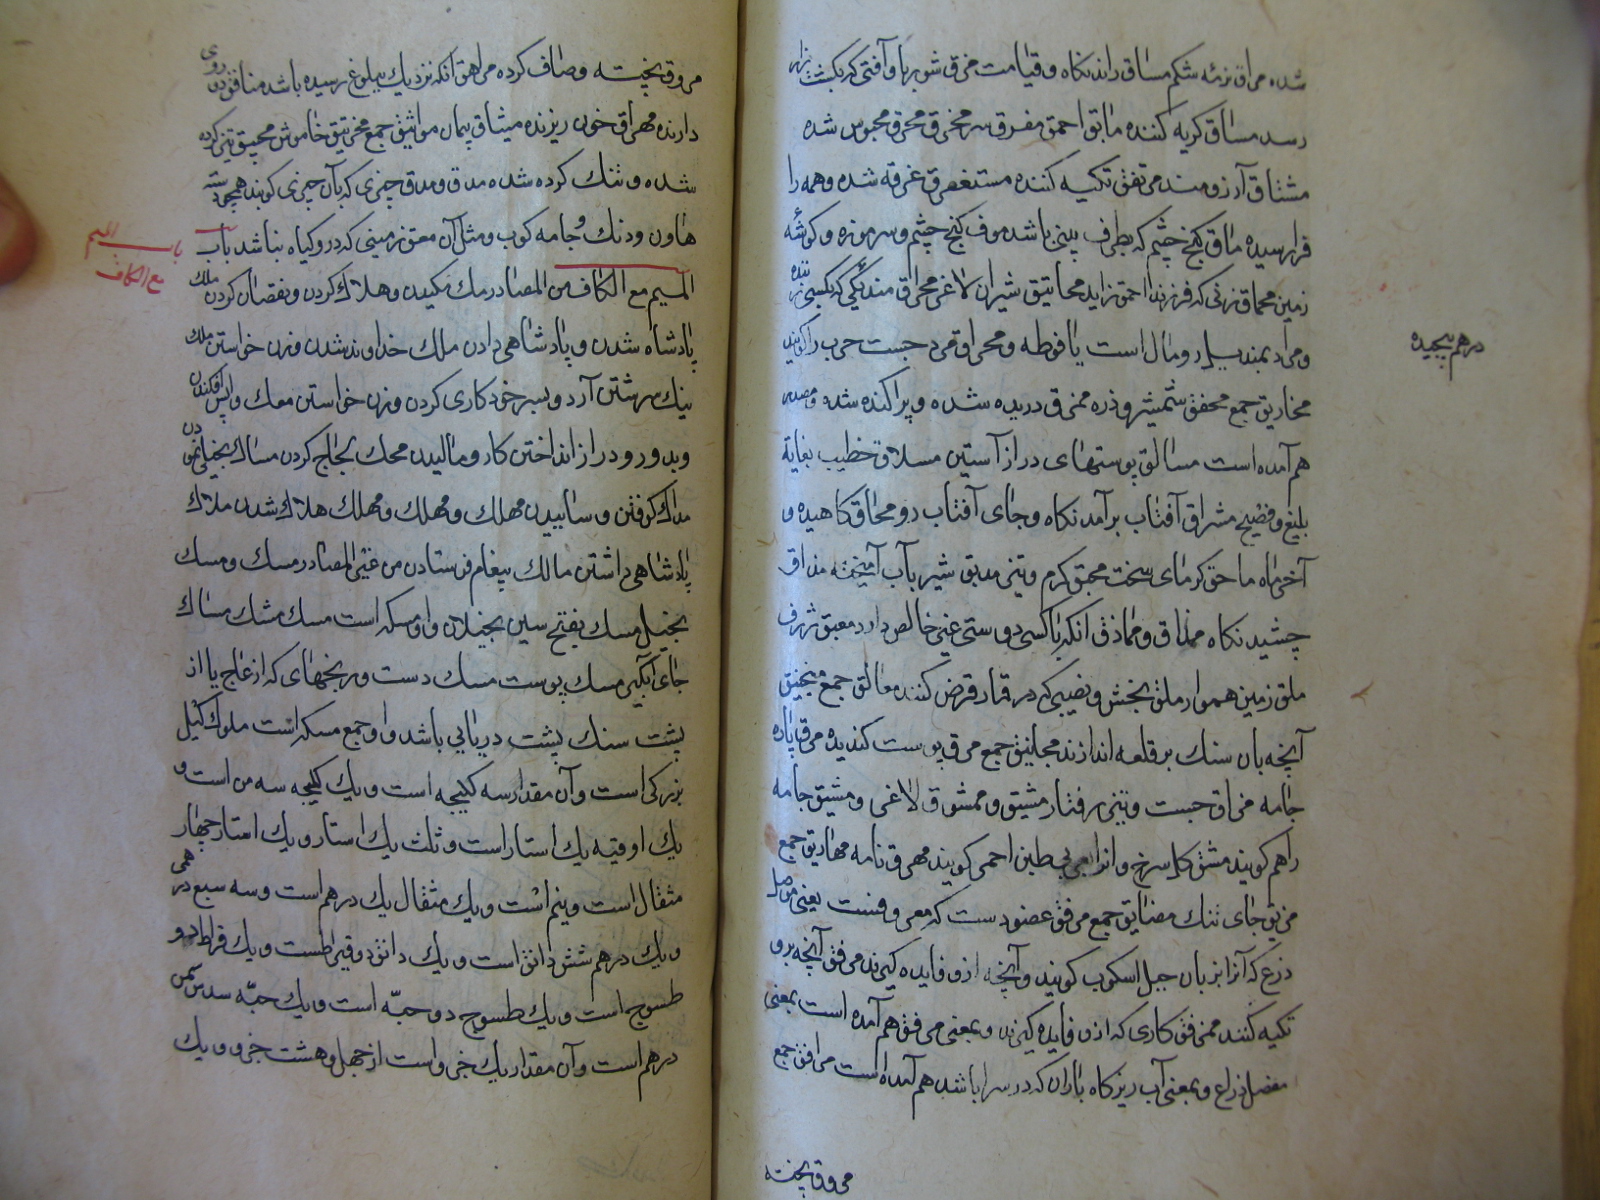 شده مراق نرمه شکم مساق راندنکاه و قیامت مرق شوربا و آفتی که بکشت زار
رسد مساق کریه کننده مائق احمق مفرق سر مخرق محرق محبوس شده
مشتاق آرزومند مرتفق تکیه کننده مستغرق غرقه شده و همه را
فرا رسیده ماق کنج چشم که بطرف بینی باشد موق کنج چشم و سر موزه و کوشه
زمین محماق زنی که فرزند احمق زاید محانیق شتران لاغر مخراق مندیلی که بکسی زنند
و مراد بمندیل رومال است یا فوطه و مخراق مرد جست حرب را کویند
درهم پیچیده
مخاریق جمع محفق شمشیر و ذره ممزق دریده شده و پراکنده شده و مصدر
هم آمده است مسالق پوستهای دراز آستین مسلاق خطیب بغایة
بلیغ و فصیح مشراق آفتاب برآمدنکاه و جای آفتاب رو محاق کاهیده و
آخر ماه ماحق کرمای سخت محمق کرم و تیز مذیق شیر بآب آمیخته مذاق
چشیدنکاه مذاق و مماذق انکه با کسی دوستی غیر خالص دارد معیق ژرف
ملق زمین هموار ملق بخش و نصیبی که در قمار قرض کنند مغالق جمع منجنیق
آنچه بان سنک بر قلعه اندازند مجانیق جمع مرق پوست کندیده مزق پاره
جامه مزاق جست و تیز رفتار مشیق و ممشوق لاغر و مشیق جامه
را هم کویند مشق کل سرخ و انرا بعربی طین احمر کویند مهرق نامه مهاریق جمع
مزیق جای تنک مضایق جمع مرفق عضو دست که معروفست یعنی مفصل
ذرع که آنرا بزبان جبل اسکوب کویند و آنچه ازو فایده کیرند مرفق آنچه برو
تکیه کنند ممرفق کاری که ازو فایده کیرند و بمعنی مرفق هم آمده است بمعنی
مفصل ذراع و بمعنی آب ریزکاه باران که در سرا باشد هم آمده است مرافق جمع
مروق پخته
مروق پخته و صاف کرده مراهق انکه نزدیک ببلوغ رسیده باشد منافق دو روی
دارنده مهراق خون ریزنده میثاق پیمان مواثیق جمع مخرنبق خاموش محیق تیز کرده
شده و تنک کرده شده مدق و مدق چیزی که بآن چیزی کوبند همچو دسته
هاون و دنک و جامه کوب و مثل آن معق زمینی که درو کیاه نباشد باب
باب المیم
مع الکاف
المیم مع الکاف من المصادر مک مکیدن و هلاک کردن و نقصان کردن ملک
پادشاه شدن و پادشاهی دادن ملک خداوند شدن و زن خواستن ملک
نیک سرشتن آرد و بسر خود کاری کردن و زن خواستن معک و اپس افکندن
وبدور و دراز انداختن کار و مالیدن محک لجاج کردن مساک بخیلی نمودن
مداک کوفتن و ساییدن مهلک و مهلک و مهلک هلاک شدن ملاک
پادشاهی داشتن مالک پیغام فرستادن من غیر المصادر مسک و مسک
بخیل مسک بفتح سین بخیلان و او مسکه است مسک مشک مساک
جای آبکیر مسک پوست مسک دست و رنجهای که از عاج یا از
پشت سنک پشت دریایی باشد و او جمع مسکه است ملوک کیل
بزرکی است و آن مقدار سه کیلجه است و یک کیلجه سه من است و
یک اوقیه یک استار است و ثلث یک استار و یک استار چهار
مثقال است و نیم است و یک مثقال یک درهم است و سه سبع درهمی
و یک درهم شش دانق است و یک دانق دو قیراطست و یک قیراط دو
طسوج است و یک طسوج دو حبّه است و یک حبّه سدس ثمن
درهم است و آن مقدار یک جزو است از چهل و هشت جزو و یک